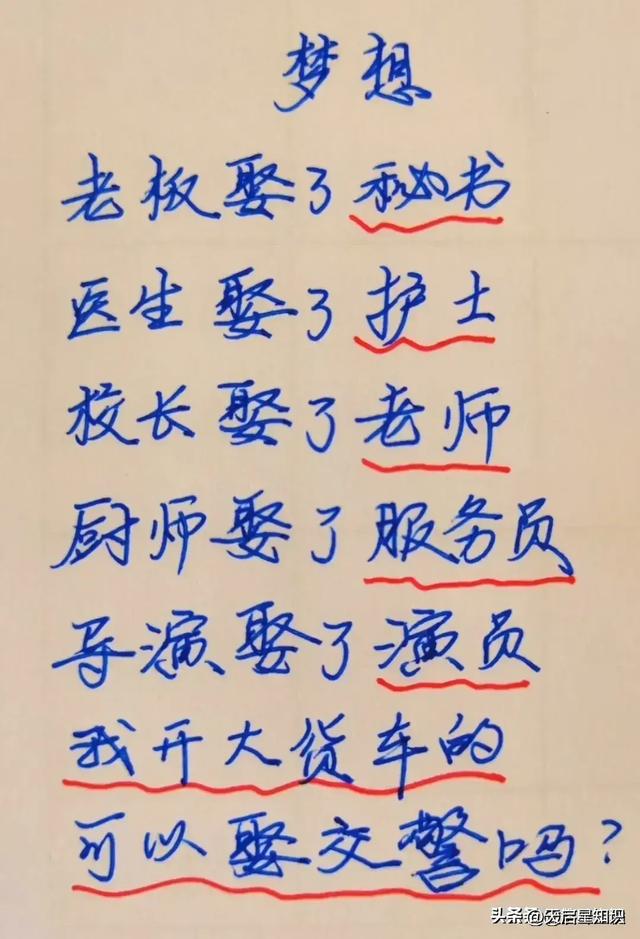 梦想
老板娶了秘书
医生娶了护士
校长娶了老师
厨师娶了服务员
导演娶了演员
我开大货车的
可以娶交警吗?
头条@天启星知识